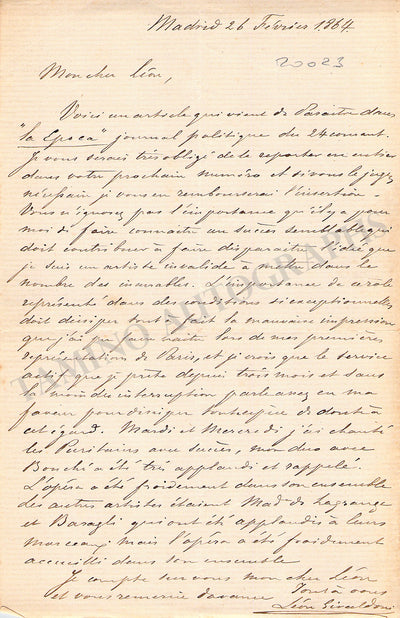 Madrid 26 Février 1864
20023
Mon cher Léon,
Voici un article qui vient de Paraitre dans
"la Epoca" journal politique du 24 courant.
Je vous serais très obligé de le reporter en entier
dans votre prochain numéro et si vous le jugez
nécessaire je vous en rembourserai l'insertion.
Vous n'ignorez pas l'importance qu'il y a pour
moi de faire connaitre un succès semblable qui
doit contribuer à faire disparaitre l'idée que
je suis un artiste invalide à mettre dans le
nombre des incurables. L'importance de ce rôle
représenté dans des conditions si exceptionnelles
doit dissiper tout à fait la mauvaise impression
que j'ai lors de mes premières
représentation de Paris, et je crois que le service
actif que je prête depuis trois mois et sans
la moindre interruption parle assez en ma
faveur pour dissiper toute espèce de doute à
cet égard. Mardi et Mercredi j'ai chanté
les Puritains avec succès, mon duo avec
Bouché a été très applaudi et rappelé.
L'opéra a été froid dans son ensemble
les autres artistes étaient Mad. de Lagrange
et Baragli qui ont été applaudis à leurs
morceaux mais l'opéra a été froidement
accueilli dans son ensemble
Je compte sur vous mon cher Léon
et vous remercie d'avance Tout à vous
Léon Giraldoni
TAMINO AUTOGRAPHS